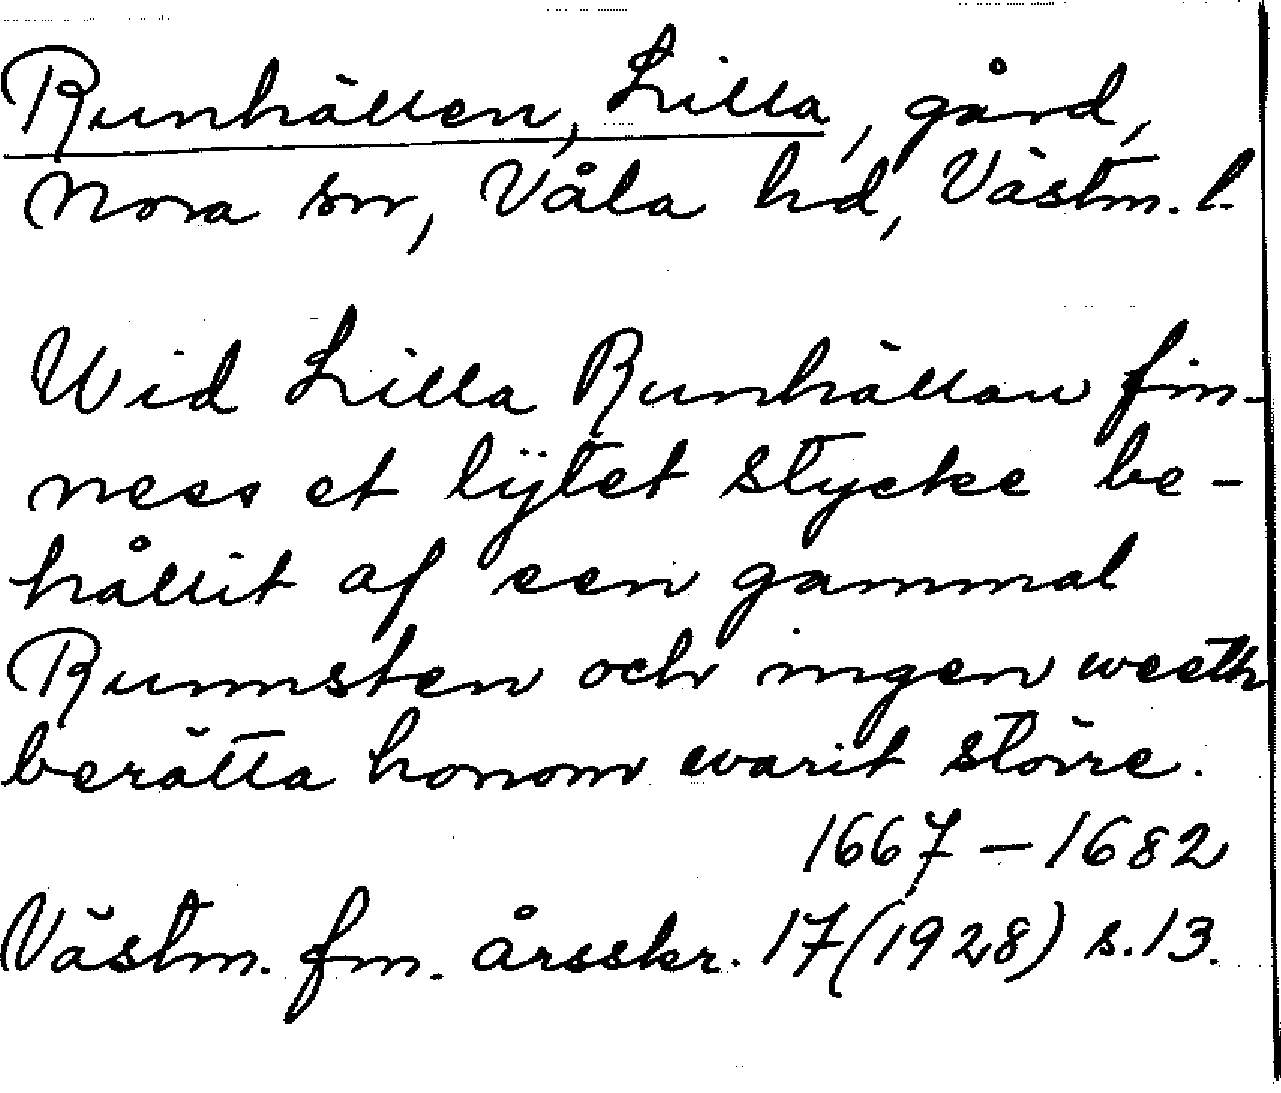 Runhällen, Lilla, gård,
Nora sn, Våla hd, Västm. l.
Wid Lilla Runhällan fin-
nees et lÿtet stycke be-
hållit af een gammal
Runnsten och ingen weeth
berätta honom warit större.
1667 – 1682
Västm. fm. årsskr. 17 (1928) s. 13.